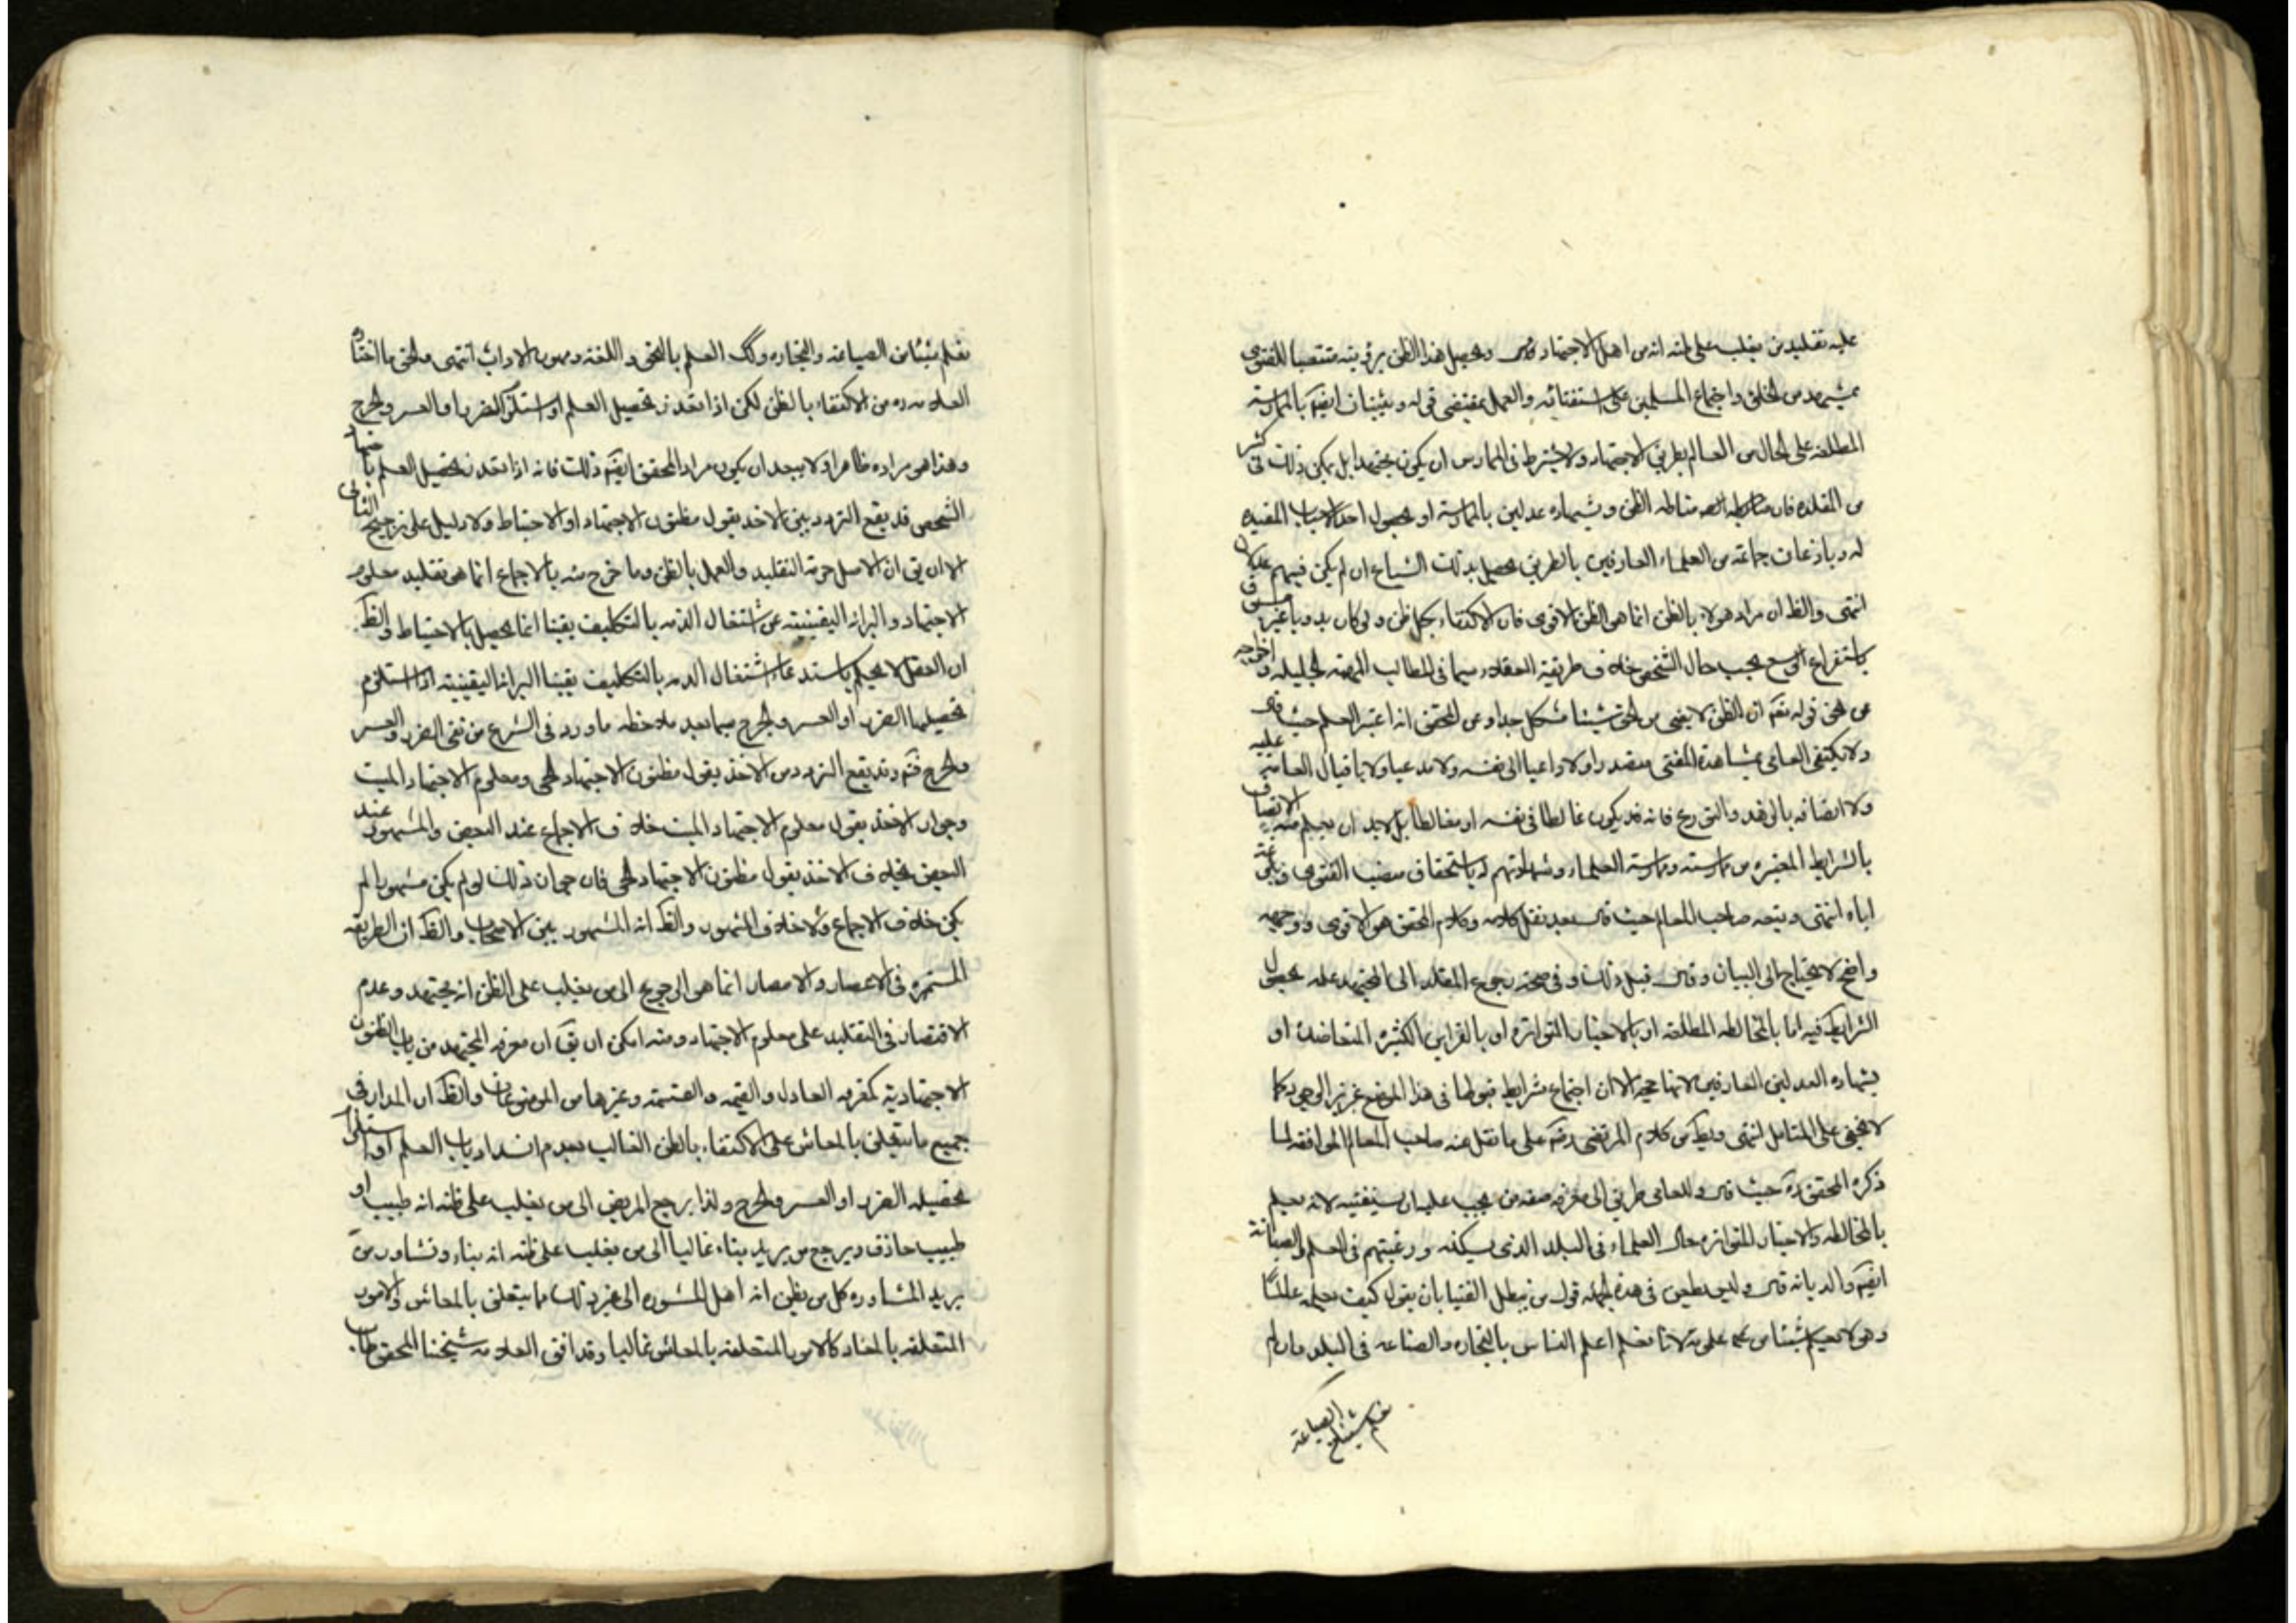 عليه تقليد من يغلب على ظنه انه من اهل الاجتهاد قال ويحصل هذا الظن برؤيته منتصبا للفتوى
بمشهد من الخلق واجتماع المسلمين على استفتائه والعمل بمقتضى قوله ويثبتان ايضا بالممارسة
المطلعة على الحال من العالم بطريق الاجتهاد ولا يشترط في الممارس ان يكون مجتهدا بل يمكن ذلك في كثير
من المقلدة فان مناطه الظن وشهادة عدلين بالممارسة او بحصول احد الاسباب المفيدة
له وباذعان جماعة من العلماء العارفين بالطريق يحصل بذلك الشياع ان لم يكن فيهم عدلان
انتهى والظ ان مراد هولاء بالظن انما هو الظن الاقوى فان الاكتفاء بكل ظن ولو كان بدويا غير مسبوق
باستفراغ الوسع بحسب حال الشخص خلاف طريقة العقلاء سيما في المطالب المهمة الجليلة واخراجه
عن نحو قوله تعم ان الظن لا يغنى من الحق شيئا مشكل جدا وعن المحقق انه اعتبر العلم حيث قال
ولا يكتفى العامى بمشاهدة المفتى متصدرا ولا داعيا الى نفسه ولا مدعيا ولا باقبال العامة عليه
ولا اتصافه بالزهد والتورع فانه قد يكون غالطا في نفسه او مغالطا بل لابد ان يعلم منه الاتصاف
بالشرايط المعتبرة من ممارسته وممارسة العلماء وشهادتهم له باستحقاق منصب الفتوى وبلوغه
اياه انتهى وتبعه صاحب المعالم حيث قال بعد نقل كلامه وكلام المحقق هو الاقوى ووجهه
واضح لا يحتاج الى البيان وقال قبل ذلك وفي صحة رجوع المقلد الى المجتهد علمه بحصول
الشرايط فيه اما بالمخالطة المطلعة او بالاخبار المتواترة او بالقراين الكثيرة المتعاضدة او
بشهادة العدلين العارفين لانها حجة الا ان اجتماع شرايط قبولها في هذا الموضع عزيز الوجود كما
لا يخفى على المتامل انتهى ويظ من كلام المرتضى رض على ما نقل عنه صاحب المعالم الموافقة لما
ذكره المحقق ره حيث قال وللعامى طريق الى معرفة صفة من يجب عليه ان يستفتيه لانه يعلم
بالمخالطة والاخبار المتواترة حال العلماء في البلد الذى يسكنه ورغبتهم في العلم والصيانة
ايضا والديانة قال وليس يطعن في هذه الجملة قول من يبطل الفتيا بان يقول كيف يعلمه عالما
وهو لا يعلم شيئا من علومه لانا نعلم اعلم الناس بالتجارة والصناعة في البلد وان لم
نعلم شيئا من الصياغة
نعلم شيئا من الصياغة والتجارة وكك العلم بالنحو واللغة وفنون الاداب انتهى والحق ما اختاره
العلامه ره من الاكتفاء بالظن لكن اذا تعذر تحصيل العلم او استلزم الضرر او العسر والحرج
وهذا هو مراده ظاهرا ولا يبعد ان يكون مراد المحقق ايضا ذلك فانه اذا تعذر تحصيل العلم باجتهاد
الشخص قد يقع التردد بين الاخذ بقول مظنون الاجتهاد او الاحتياط ولا دليل على ترجيح الثانى
الا ان يق ان الاصل حرمة التقليد والعمل بالظن وما خرج منه بالاجماع انما هو تقليد معلوم
الاجتهاد والبرائة اليقينية عن اشتغال الذمه بالتكليف يقينا انما يحصل بالاحتياط والظ
ان العقل لا يحكم باستدعاء اشتغال الذمه بالتكليف يقينا البرائة اليقينية اذا استلزم
تحصيلها الضرر او العسر والحرج سيما بعد ملاحظة ما ورد في الشرع من نفى الضرر والعسر
والحرج فتم وقد يقع التردد من الاخذ بقول مظنون الاجتهاد الحى ومعلوم الاجتهاد الميت
وجواز الاخذ بقول معلوم الاجتهاد الميت خلاف الاجماع عند البعض والمشهور عند
البعض بخلاف الاخذ بقول مظنون الاجتهاد الحى فان جواز ذلك لو لم يكن مشهورا لم
يكن خلاف الاجماع ولا خلاف المشهور والظ انه المشهور بين الاصحاب والظ ان الطريقه
المستمره في الاعصار والامصار انما هو الرجوع الى من يغلب على الظن انه مجتهد وعدم
الاقتصار في التقليد على معلوم الاجتهاد ومنه امكن ان يق ان معرفة المجتهد من باب الظنون
الاجتهادية كمعرفه العادل والقيمه والقسمة وغيرها من الموضوعات والظ ان المدار في
جميع ما يتعلق بالمعاش على الاكتفاء بالظن الغالب بعدم انسداد باب العلم او استلزام
تحصيله الضرر او العسر والحرج ولذا يرجع المريض الى من يغلب على ظنه انه طبيب او
طبيب حاذق ويرجع من يريد بناء غاليا الى من يغلب على ظنه انه بناء وتشاور من
يريد المشاوره كل من يظن انه اهل المشوره الى غير ذلك مما يتعلق بالمعاش والامور
المتعلقه بالمعاد كالامور المتعلقه بالمعاش غالبا وقد افق العلامه شيخنا المحقق طاب